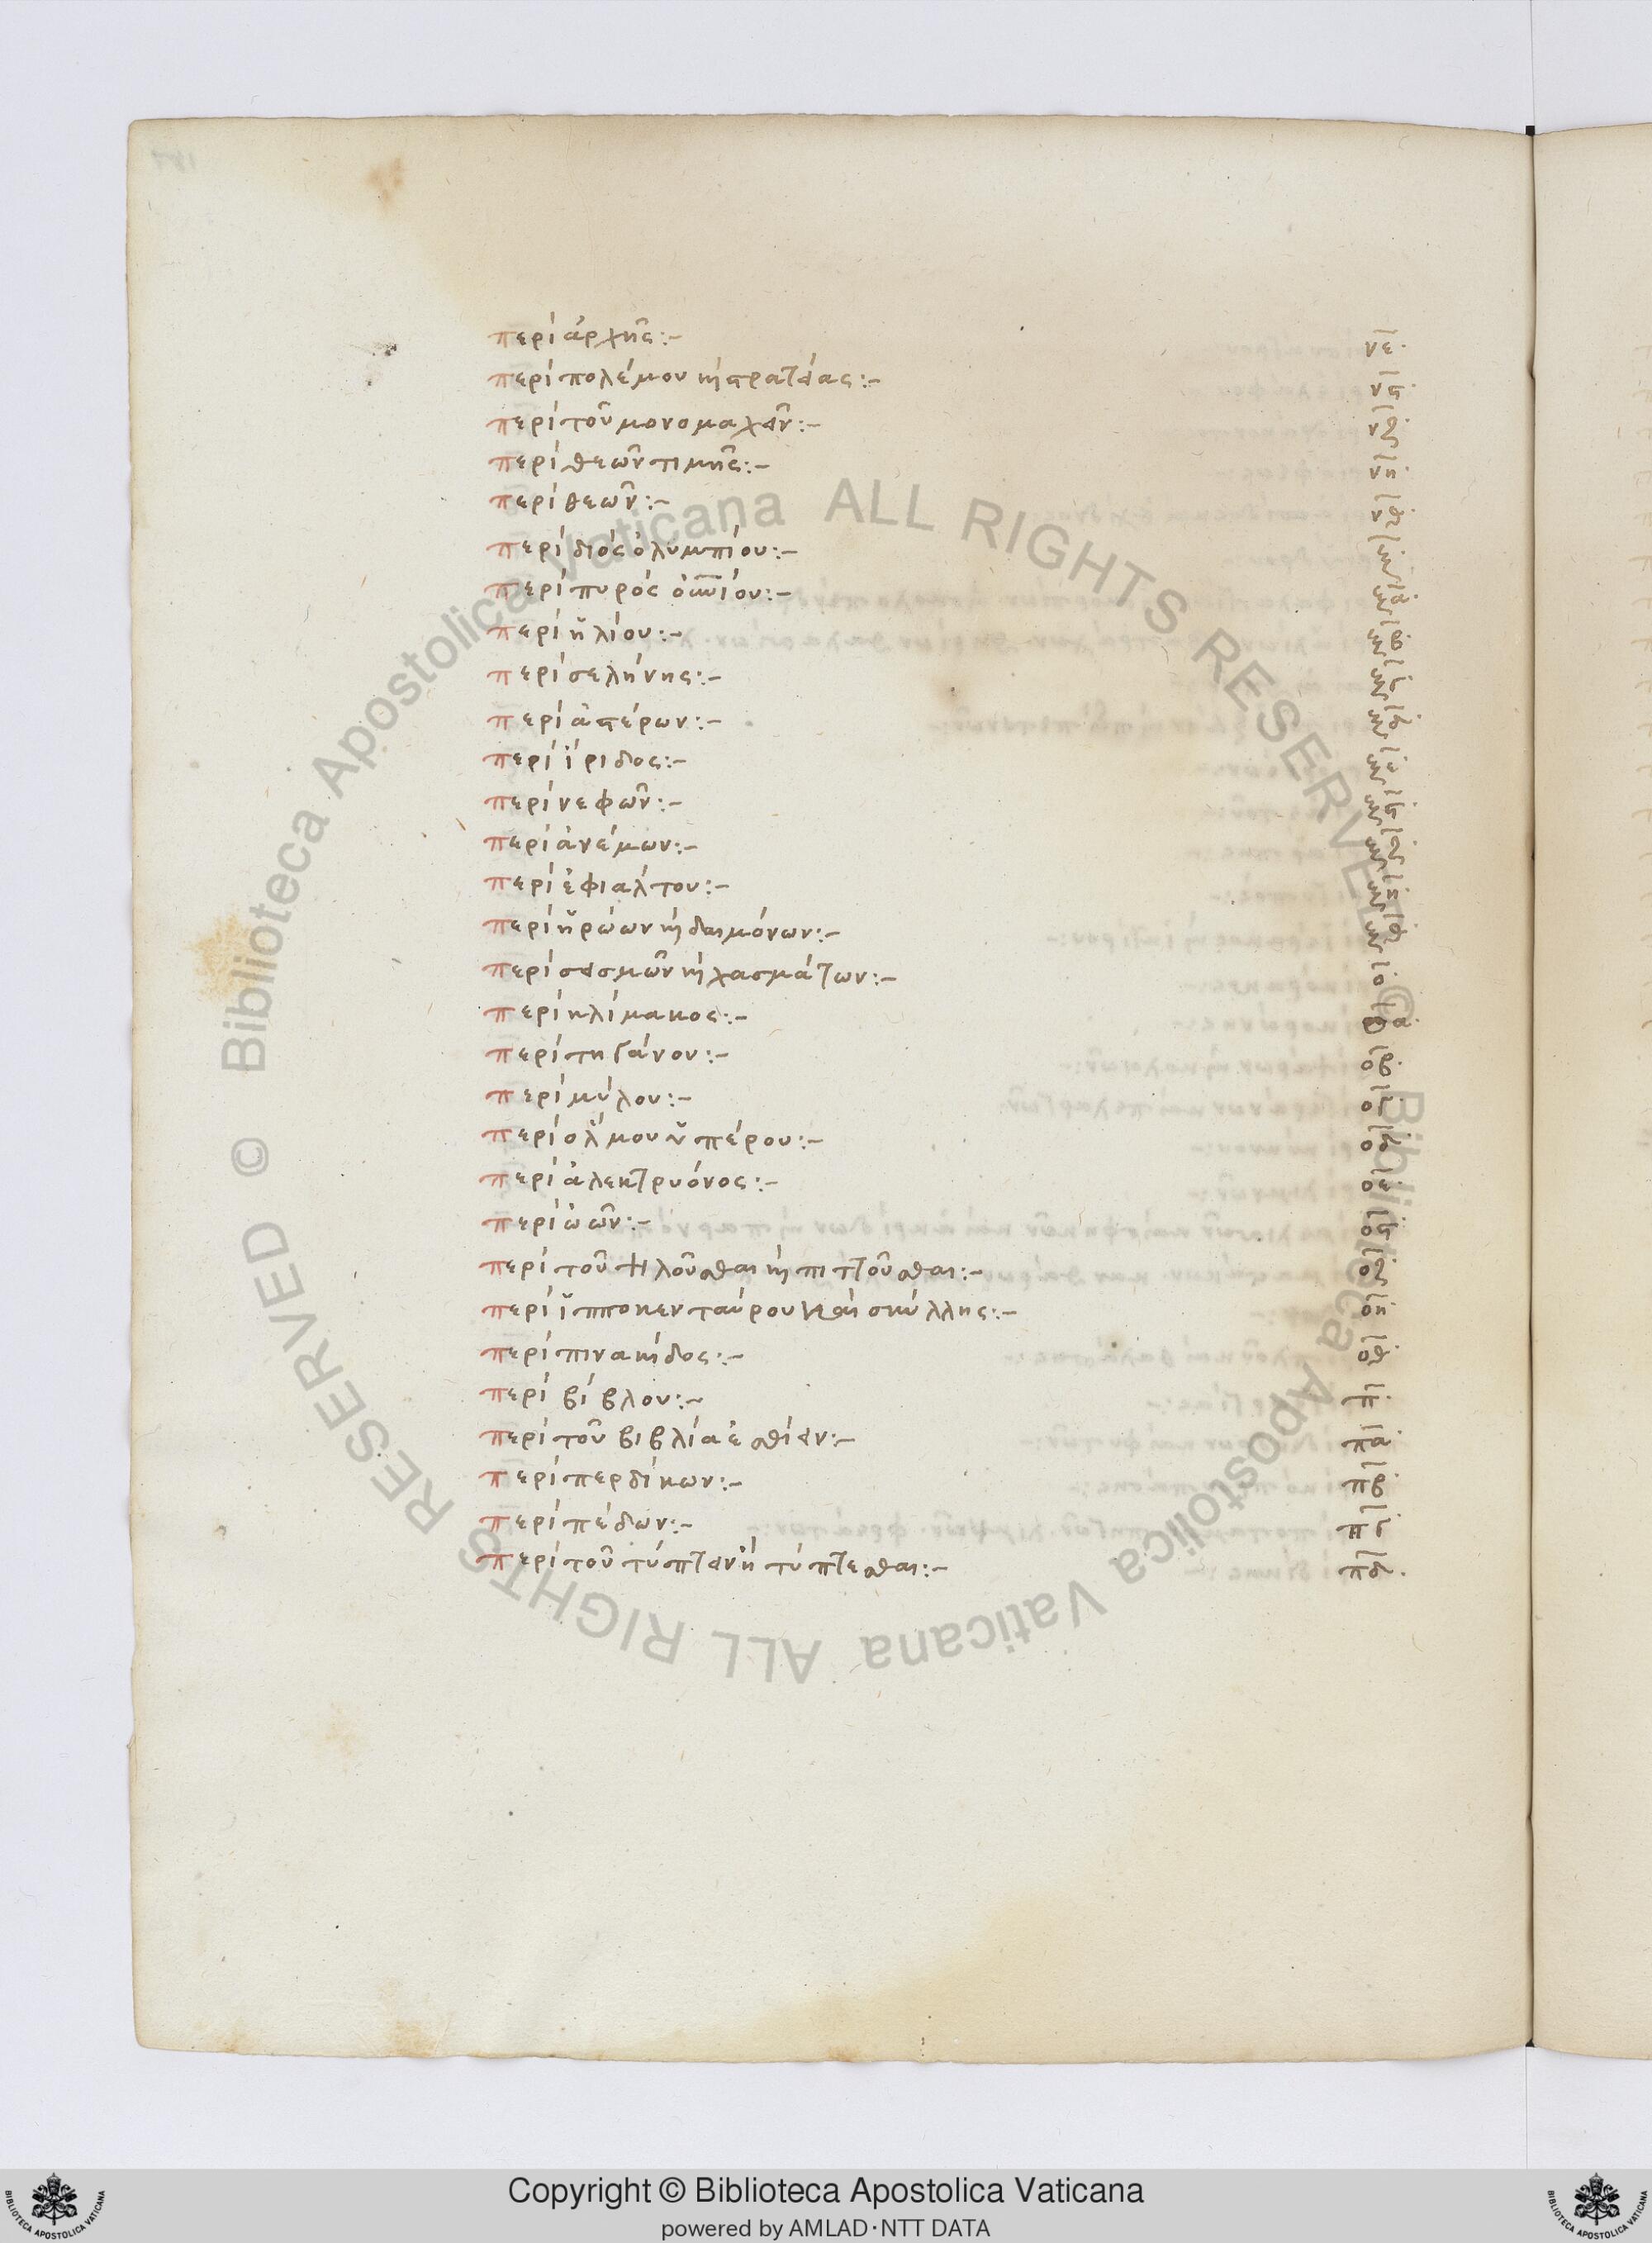 περὶ ἀρχῆς:– νε
περὶ πολέμου κὶ στρατείας:– νϛ
περὶ τοῦ μονομαχεῖν:– νζ
περὶ θεῶν τιμῆς:– νη
περὶ θεῶν:– νθ
περὶ διὸς ὀλυμπίου:– ξ
περὶ πυρὸς οὐρανίου:– ξα
περὶ ἡλίου:– ξβ
περὶ σελήνης:– ξγ
περὶ ἀστέρων:– ξδ
περὶ ἴριδος:– ξε
περὶ νεφῶν:– ξϛ
περὶ ἀνέμων:– ξζ
περὶ ἐφιάλτου:– ξη
περὶ ἡρώων κὶ δαιμόνων:– ξθ
περὶ σεισμῶν κὶ χασμάτων:– ο
περὶ κλίμακος:– οα
περὶ τηγάνου:– οβ
περὶ μύλου:– ογ
περὶ ὅλμου ὑπέρου:– οδ
περὶ ἀλεκτρυόνος:– οε
περὶ ὠῶν:– οϛ
περὶ τοῦ τηλοῦσθαι κὶ πιττοῦσθαι:– οζ
περὶ ἱπποκενταύρου καὶ σκύλλης:– οη
περὶ πινακίδος:– οθ
περὶ βίβλου:– π
περὶ τοῦ βιβλία ἐσθίειν:– πα
περὶ περδίκων:– πβ
περὶ πέδων:– πγ
περὶ τοῦ τύπτειν ἢ τύπτεσθαι:– πδ
© Biblioteca Apostolica Vaticana ALL RIGHTS RESERVED
© Biblioteca Apostolica Vaticana ALL RIGHTS RESERVED
Copyright © Biblioteca Apostolica Vaticana
powered by AMLAD·NTT DATA
BIBLIOTECA APOSTOLICA VATICANA
BIBLIOTECA APOSTOLICA VATICANA